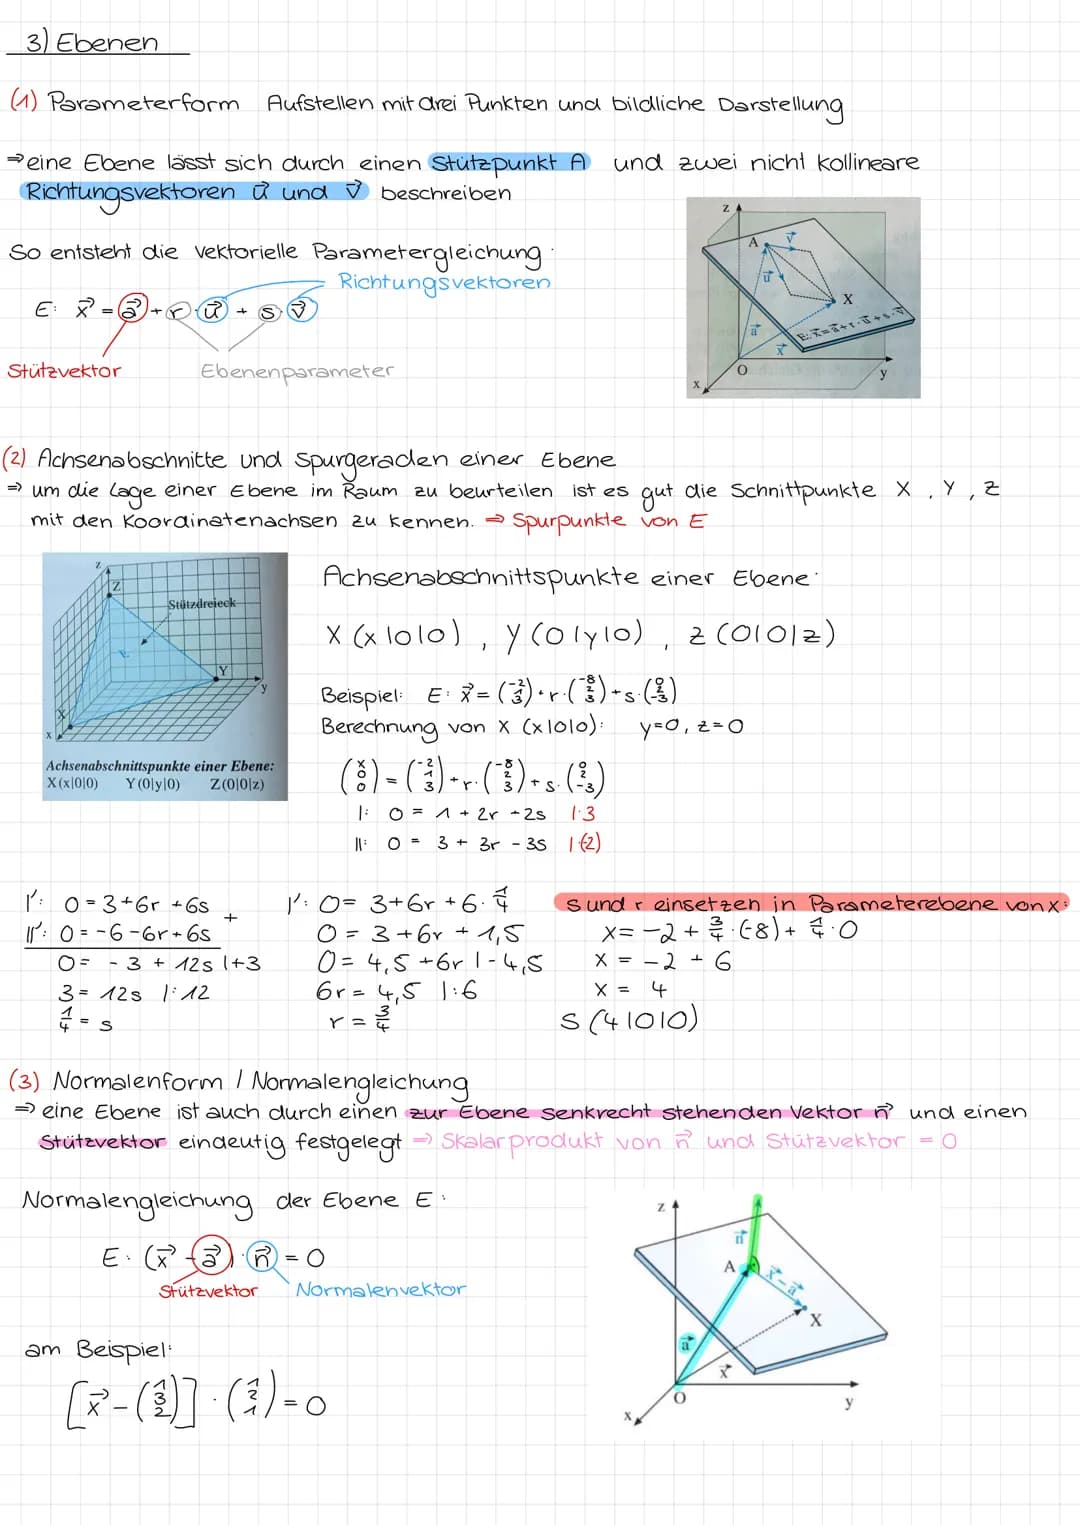 3) Ebenen
(1) Parameterform Aufstellen mit drei Punkten und bildliche Darstellung
⇒ eine Ebene lässt sich durch einen Stützpunkt A und zwei nicht kollineare
Richtungsvektoren u⃗ und v⃗ beschreiben
So entsteht die vektorielle Parametergleichung:
Richtungsvektoren
E: x⃗ = a⃗ + r · u⃗ + s · v⃗
Stützvektor Ebenenparameter
z
A v⃗
u⃗
X
a⃗
E: x⃗ = a⃗ + r · u⃗ + s · v⃗
x⃗
O
x y
(2) Achsenabschnitte und Spurgeraden einer Ebene
⇒ um die Lage einer Ebene im Raum zu beurteilen ist es gut die Schnittpunkte X, Y, Z
mit den Koordinatenachsen zu kennen. ⇒ Spurpunkte von E
z
Z
Stützdreieck
E
Y
y
X
x
Achsenabschnittspunkte einer Ebene:
X(x|0|0) Y(0|y|0) Z(0|0|z)
Achsenabschnittspunkte einer Ebene:
X (x|0|0), Y (0|y|0), Z (0|0|z)
Beispiel: E: x⃗ = (-2 1 3) + r · (-8 2 3) + s · (0 2 -3)
Berechnung von X (x|0|0): y=0, z=0
(x 0 0) = (-2 1 3) + r · (-8 2 3) + s · (0 2 -3)
I: 0 = 1 + 2r + 2s |·3
II: 0 = 3 + 3r - 3s |(-2)
I': 0 = 3 + 6r + 6s
II': 0 = -6 - 6r + 6s +
0 = -3 + 12s |+3
3 = 12s |:12
1/4 = s
I': 0 = 3 + 6r + 6 · 1/4
0 = 3 + 6r + 1,5
0 = 4,5 + 6r |-4,5
6r = 4,5 |:6
r = 3/4
s und r einsetzen in Parameterebene von x:
x = -2 + 3/4 · (-8) + 1/4 · 0
x = -2 + 6
x = 4
S (4|0|0)
(3) Normalenform / Normalengleichung
⇒ eine Ebene ist auch durch einen zur Ebene senkrecht stehenden Vektor n⃗ und einen
Stützvektor eindeutig festgelegt ⇒ Skalarprodukt von n⃗ und Stützvektor = 0
Normalengleichung der Ebene E:
E: (x⃗ - a⃗) · n⃗ = 0
Stützvektor Normalenvektor
am Beispiel:
[x⃗ - (1 3 2)] · (1 2 1) = 0
z
n⃗
A
x⃗ - a⃗
X
a⃗
x⃗
O
x y